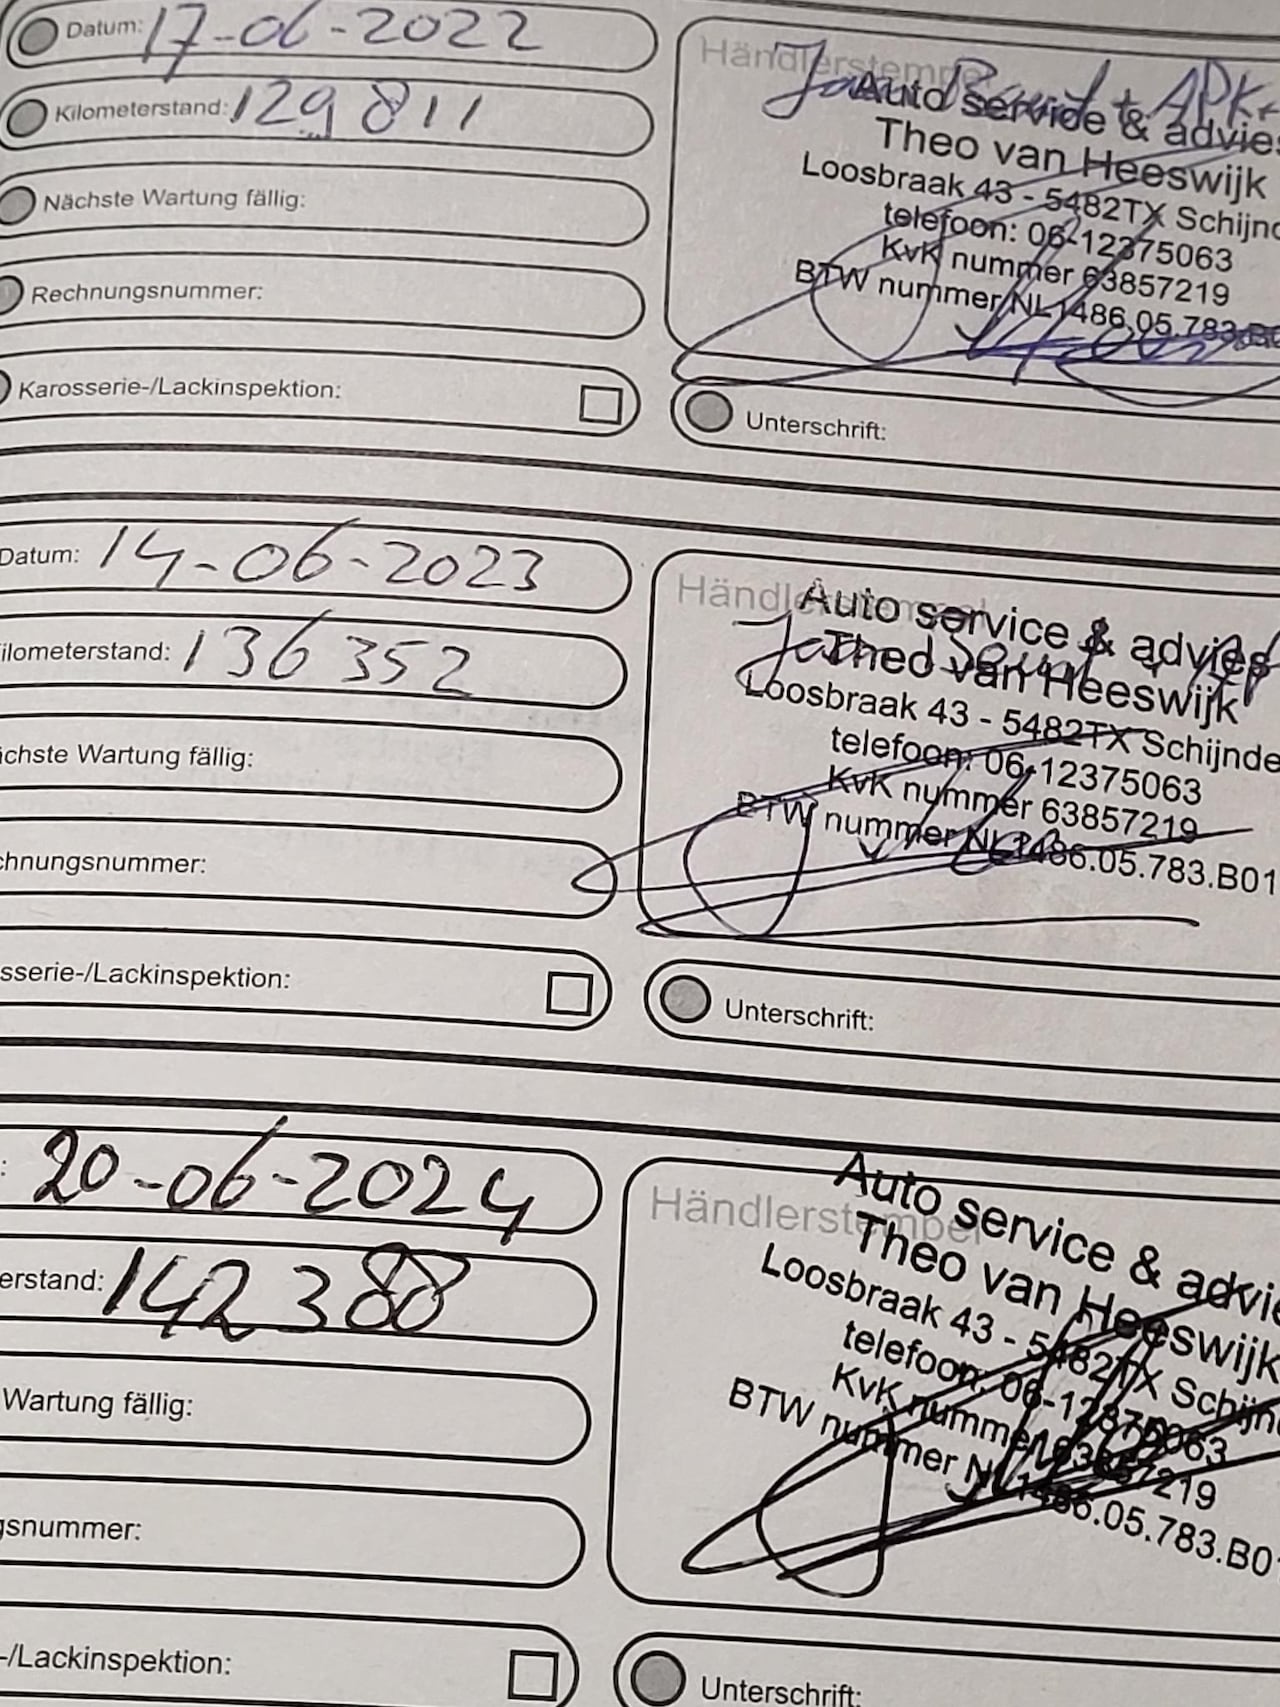 Datum: 17-06-2022
Kilometerstand: 129811
Nächste Wartung fällig:
Rechnungsnummer:
Karosserie-/Lackinspektion:
Händlerstempe
Jaar Beurt + APK
Auto service & advies
Theo van Heeswijk
Loosbraak 43 - 5482TX Schijnd
telefoon: 06-12375063
KvK nummer 63857219
BTW nummer NL1486.05.783.B0
Unterschrift:
Datum: 14-06-2023
ilometerstand: 136352
ichste Wartung fällig:
chnungsnummer:
sserie-/Lackinspektion:
Händlerstempel
Auto service & advies
Jaar Beurt
Theo van Heeswijk
Loosbraak 43 - 5482TX Schijnde
telefoon: 06-12375063
KvK nummer 63857219
BTW nummer NL1486.05.783.B01
Unterschrift:
: 20-06-2024
erstand: 142388
Wartung fällig:
gsnummer:
-/Lackinspektion:
Händlerstempel
Auto service & advie
Theo van Heeswijk
Loosbraak 43 - 5482TX Schijn
telefoon: 06-12375063
KvK nummer 63857219
BTW nummer NL1486.05.783.B01
Unterschrift: